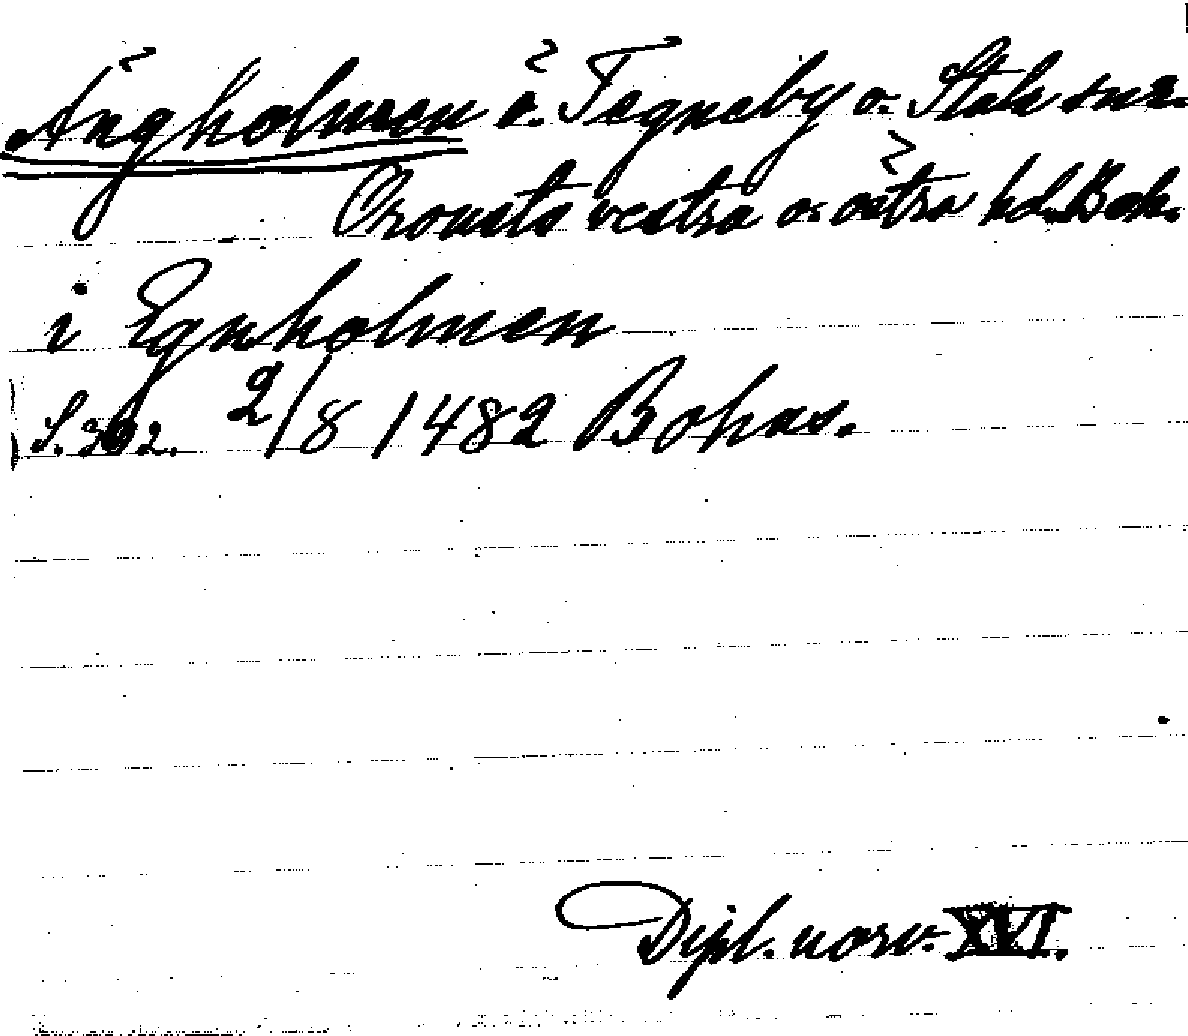 Ängholmen ö. Tegneby o. Stala snr.
Orousts vestra o. östra hd. Boh.
i Egnholmen
S. 302. 2/8 1482 Bohus.
Dipl. norv. XVI.